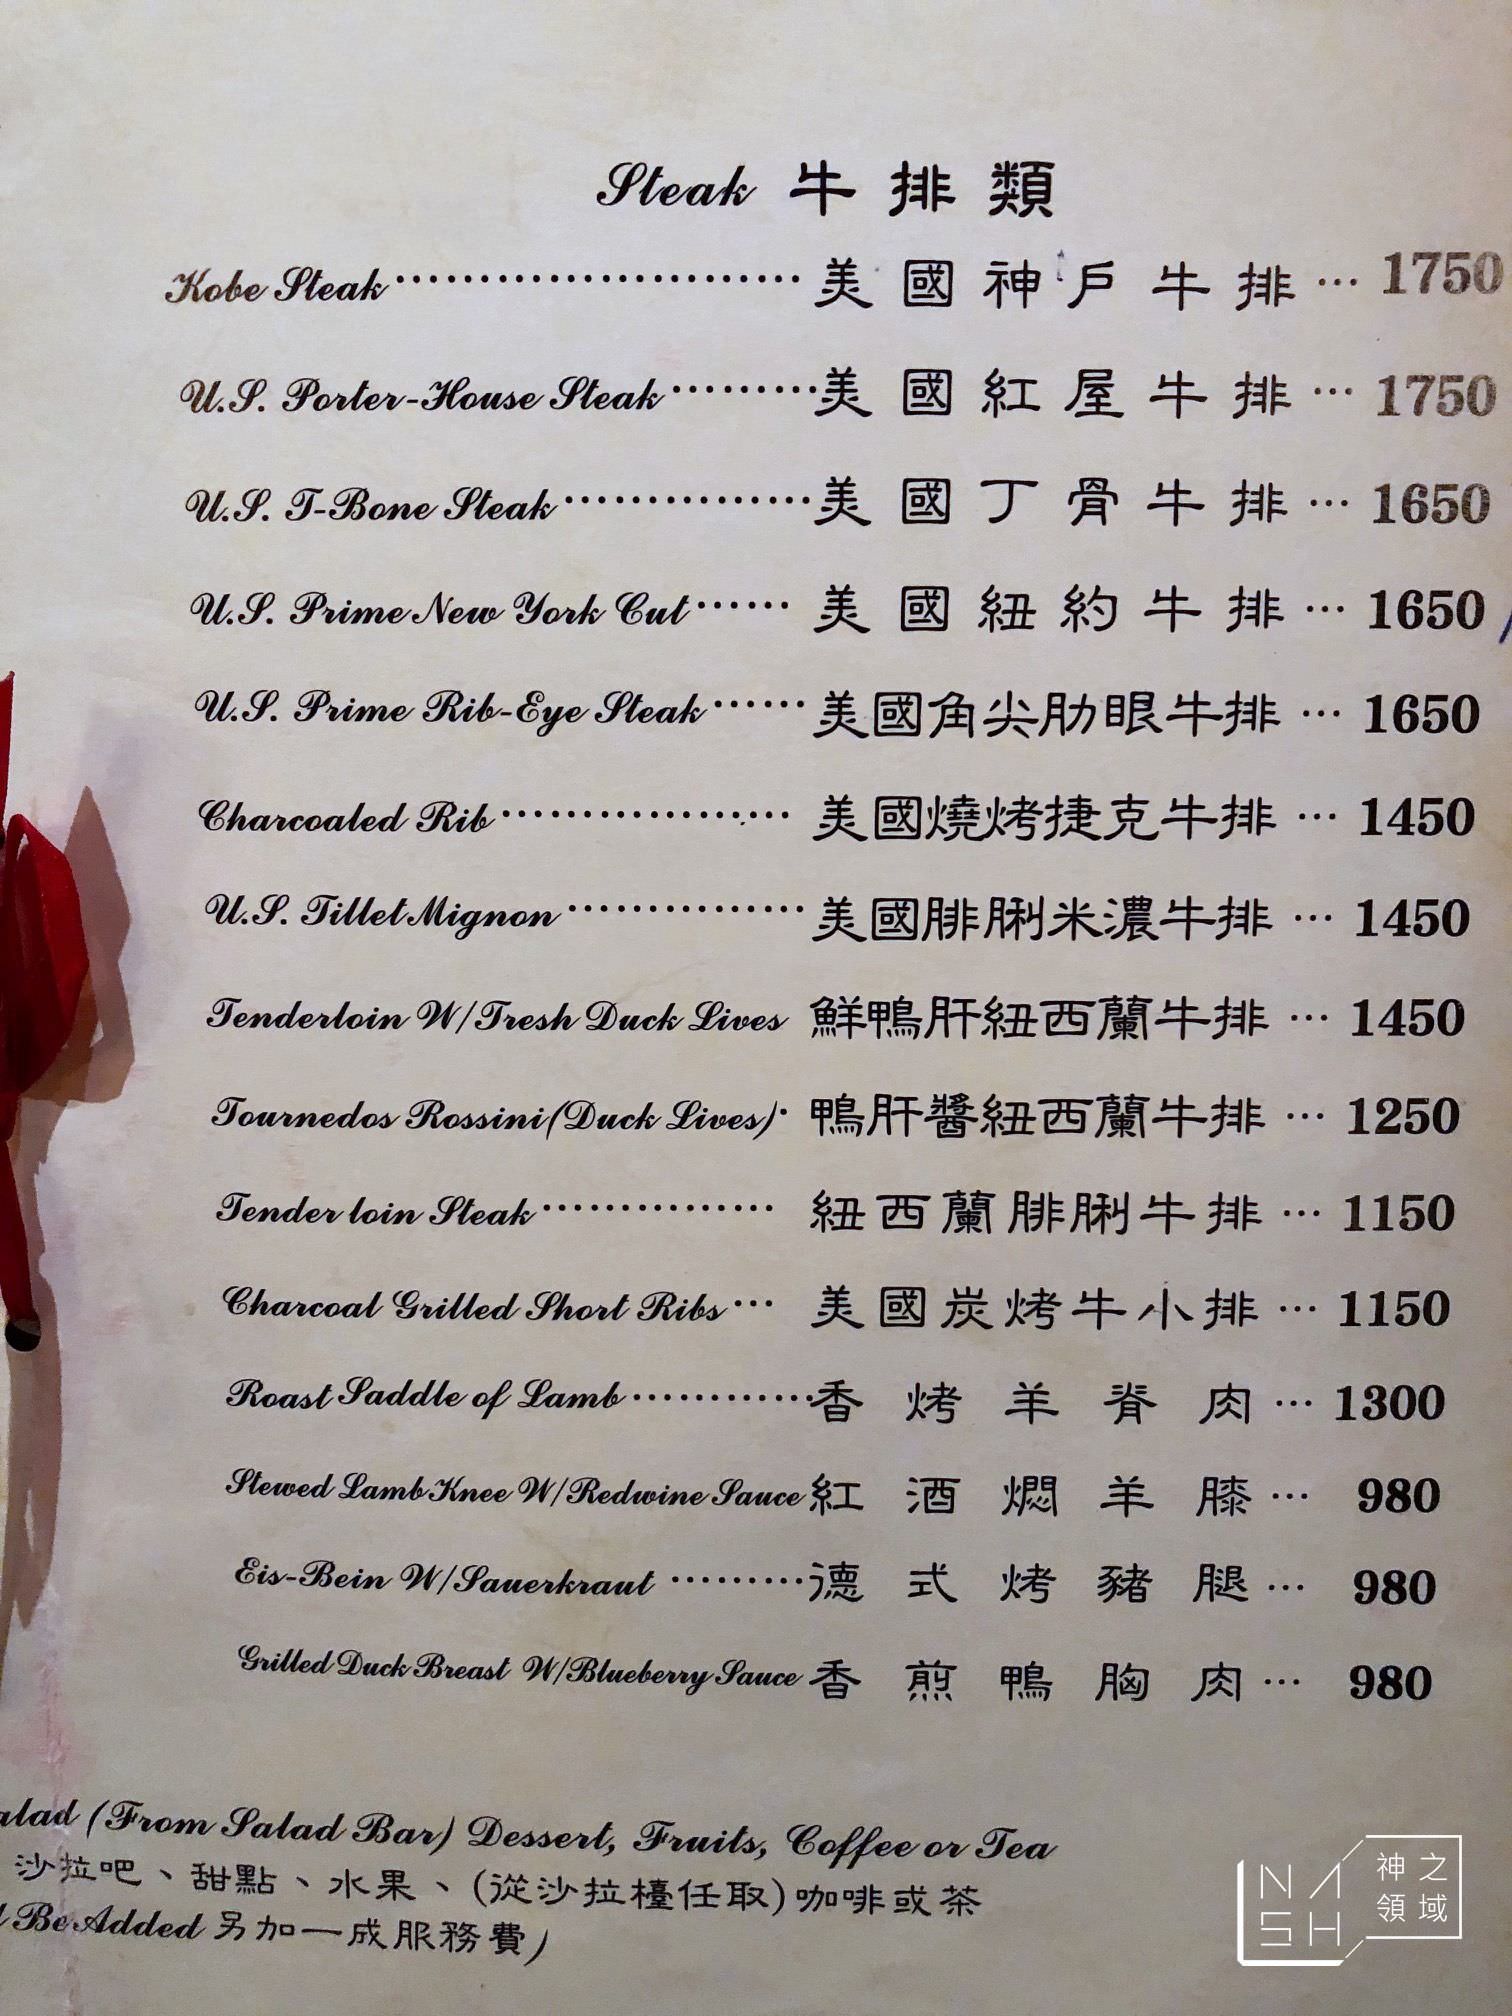 Steak 牛排類
Kobe Steak························美國神戶牛排···1750
U.S. Porter-House Steak·········美國紅屋牛排···1750
U.S. T-Bone Steak···············美國丁骨牛排···1650
U.S. Prime New York Cut······美國紐約牛排···1650
U.S. Prime Rib-Eye Steak······美國角尖肋眼牛排···1650
Charcoaled Rib··················美國燒烤捷克牛排···1450
U.S. Tillet Mignon···············美國腓脷米濃牛排···1450
Tenderloin W/Tresh Duck Lives 鮮鴨肝紐西蘭牛排···1450
Tournedos Rossini(Duck Lives)·鴨肝醬紐西蘭牛排···1250
Tender loin Steak···············紐西蘭腓脷牛排···1150
Charcoal Grilled Short Ribs···美國炭烤牛小排···1150
Roast Saddle of Lamb············香烤羊脊肉···1300
Stewed Lamb Knee W/Redwine Sauce紅酒燜羊膝···980
Eis-Bein W/Sauerkraut·········德式烤豬腿···980
Grilled Duck Breast W/Blueberry Sauce香煎鴨胸肉···980
alad (From Salad Bar) Dessert, Fruits, Coffee or Tea
沙拉吧、甜點、水果、(從沙拉檯任取)咖啡或茶
Be Added 另加一成服務費)
NASH 神之領域